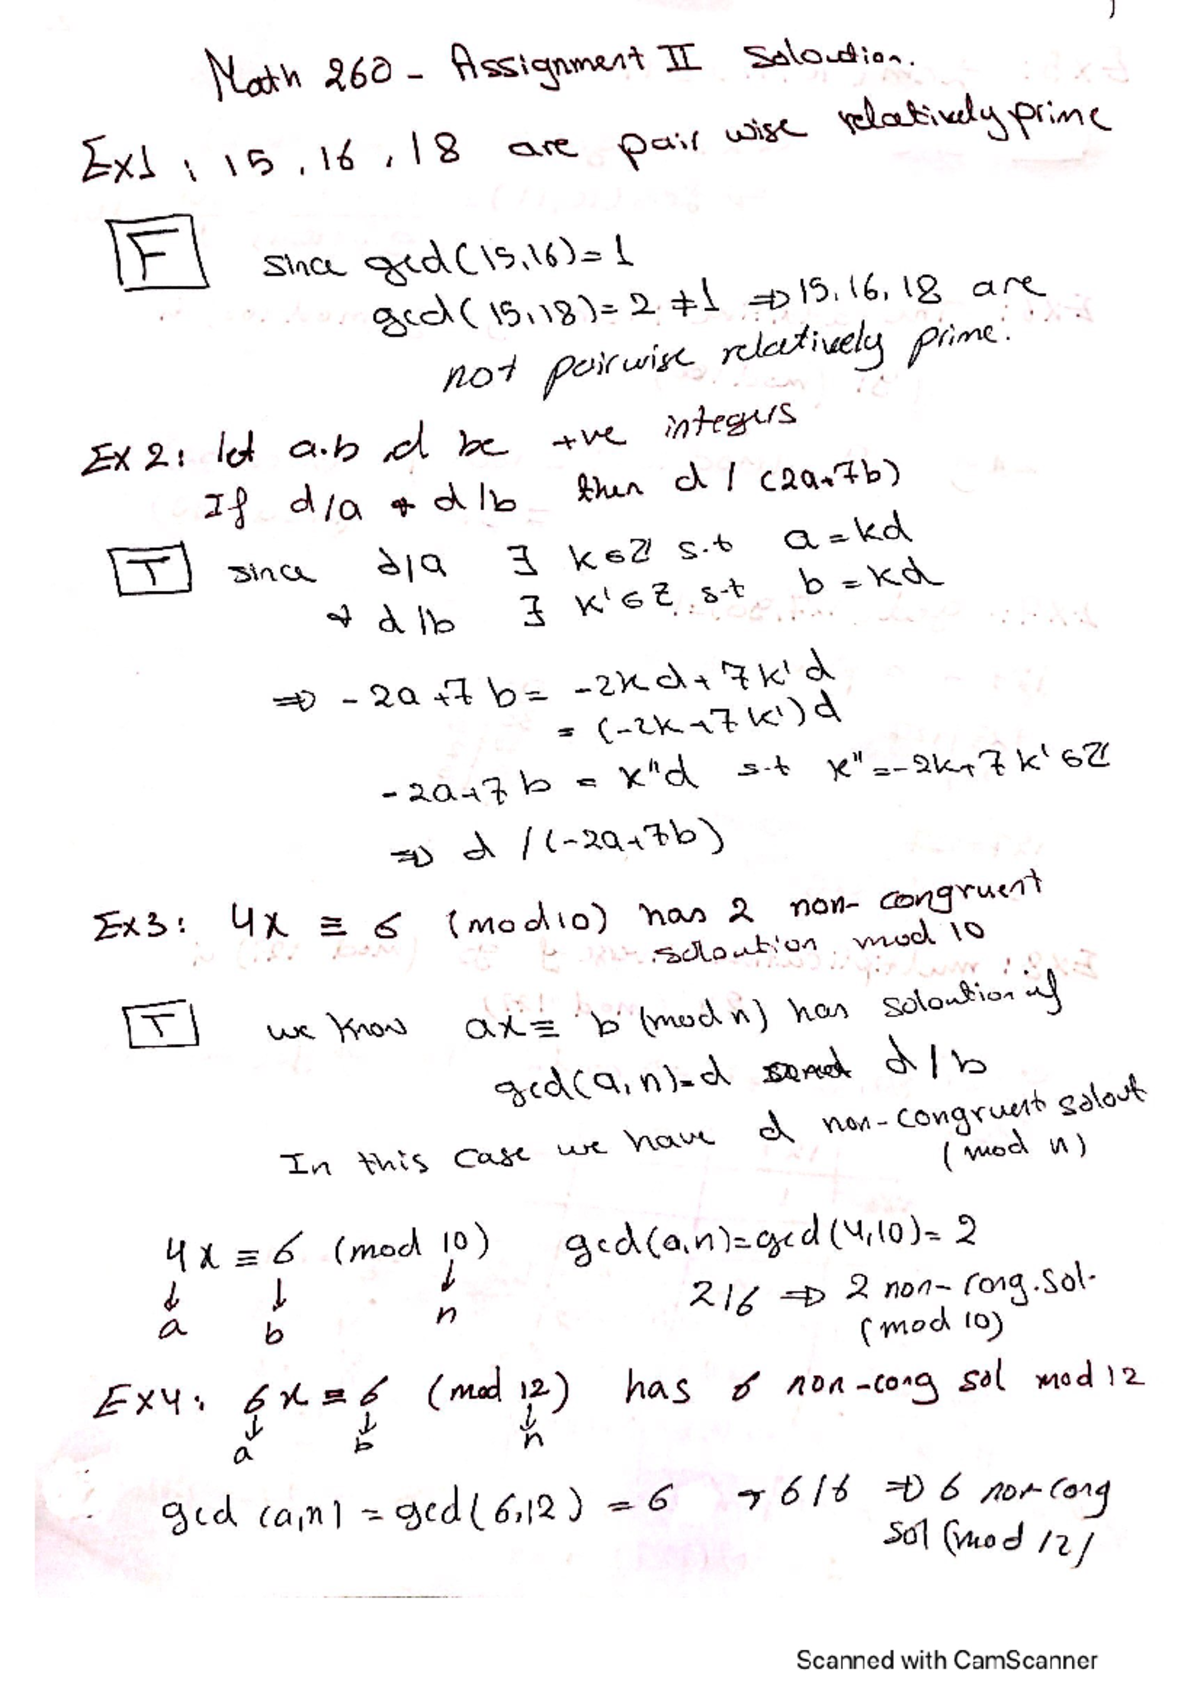 Math 260 - Assignment II Soloution.
Ex1 : 15, 16, 18 are pair wise relatively prime
F since gcd(15,16)=1
gcd(15,18)=2 ≠1 ⇒ 15,16,18 are
not pairwise relatively prime.
Ex 2: let a.b ,d be +ve integers
If d/a & d/b then d / (2a+7b)
T since d/a ∃ k∈ℤ s.t a=kd
& d/b ∃ k'∈ℤ s-t b=kd
⇒ -2a+7b= -2kd+7k'd
= (-2k+7k')d
-2a+7b = k"d s-t k"=-2k+7k'∈ℤ
⇒ d /(-2a+7b)
Ex3: 4x ≡ 6 (mod10) has 2 non-congruent
soloution mod 10
T we know ax≡ b (mod n) has soloution if
gcd(a,n)=d and d/b
In this case we have d non-congruent solout
(mod n)
4x ≡6 (mod 10) gcd(a,n)=gcd(4,10)= 2
↓ ↓ ↓ 2/6 ⇒ 2 non-cong.sol.
a b n (mod 10)
Ex4: 6x≡6 (mod 12) has 6 non-cong sol mod 12
↓ ↓ ↓
a b n
gcd (a,n) = gcd(6,12) = 6 → 6/6 ⇒ 6 non-cong
sol (mod 12)
Scanned with CamScanner